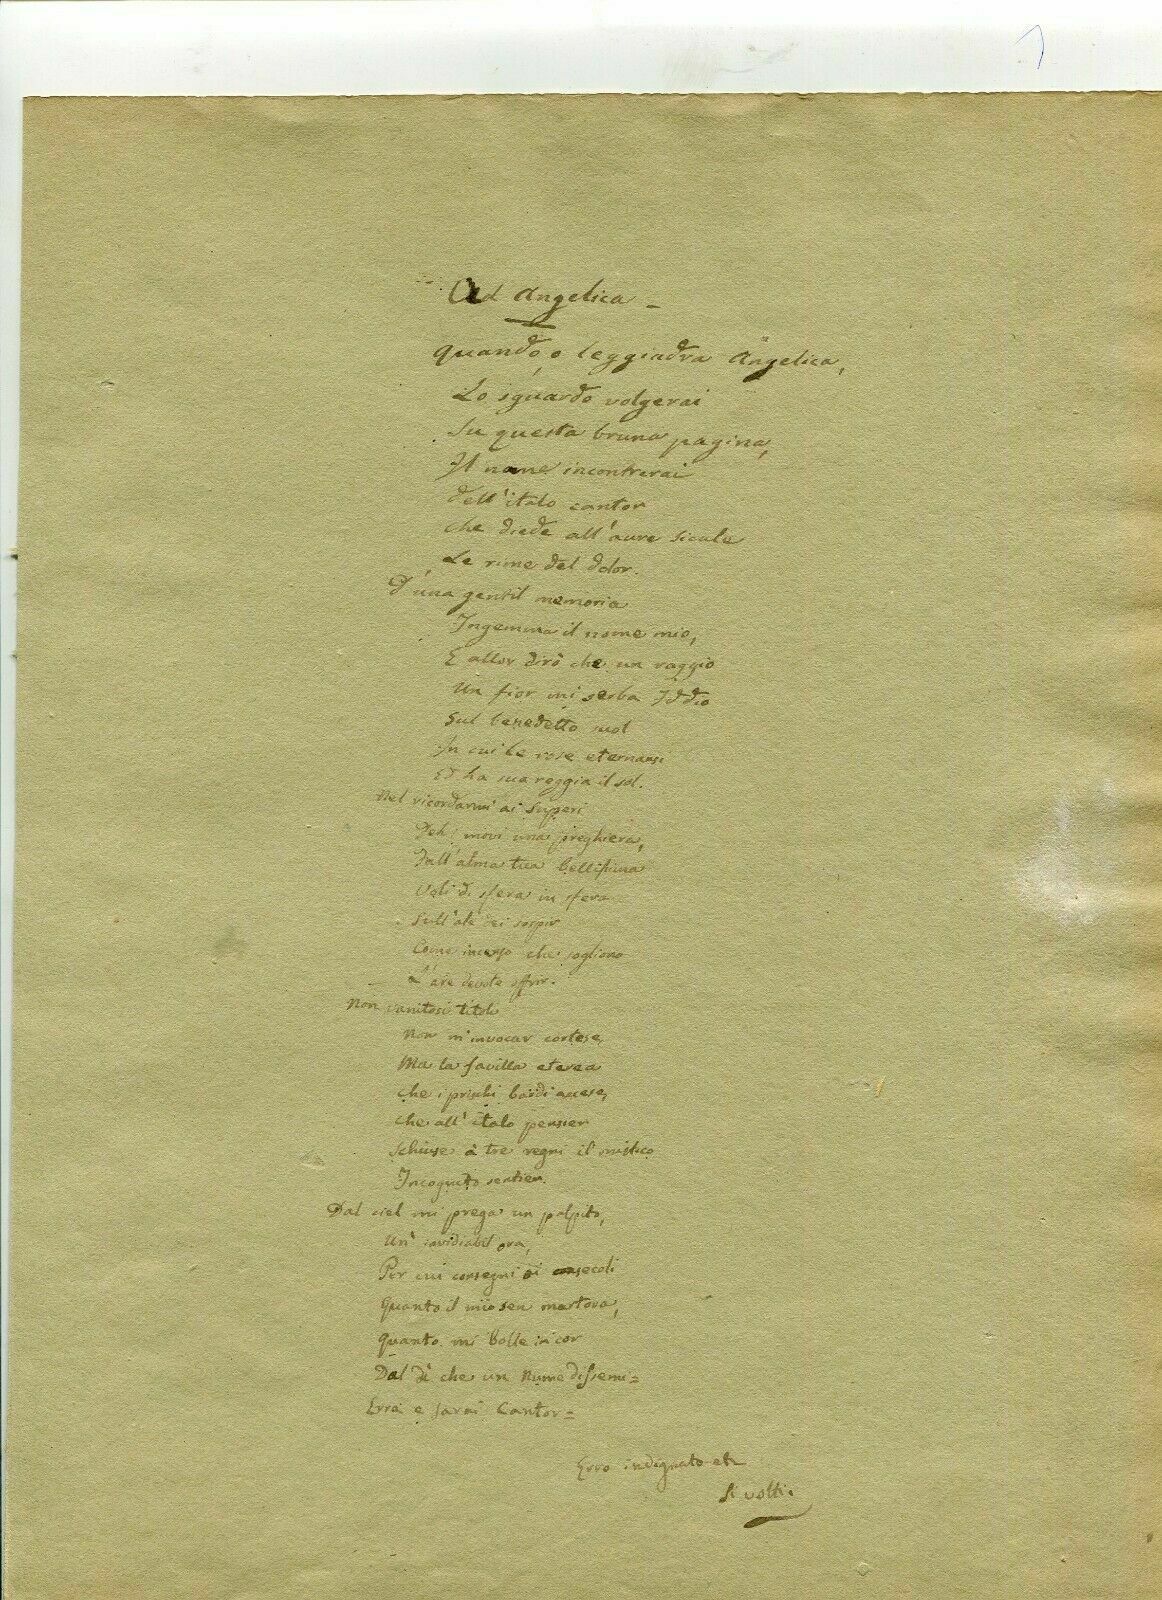 Ad Angelica -
Quando, o leggiadra Angelica,
Lo sguardo volgerai
Su questa bruna pagina,
Il nome incontrerai
Dell'italo cantor
Che diede all'aure sicule
Le rime del dolor.
D'una gentil memoria
Ingemma il nome mio,
E allor dirò che un raggio
Un fior mi serba Iddio
Sul benedetto suol
In cui le rose eternansi
Ed ha sua reggia il sol.
Nel ricordarmi ai Superi
Deh! movi una preghiera,
Dall'alma tua bellissima
Voli di sfera in sfera
Sull'ale dei sospir
Come incenso che sogliono
L'are devote offrir.
Non vanitosi titoli
Non m'invocar cortese,
Ma la favilla eterea
Che i prischi bardi accese,
Che all'italo pensier
Schiuse a tre regni il mistico
Incognito sentier.
Dal ciel mi prega un palpito,
Un' invidiabil ora,
Per cui consegni ai secoli
Quanto il mio sen martora,
Quanto mi bolle in cor
Dal dì che un Nume dissemi =
Erra e sarai Cantor =
Erro indegnato
Si volti